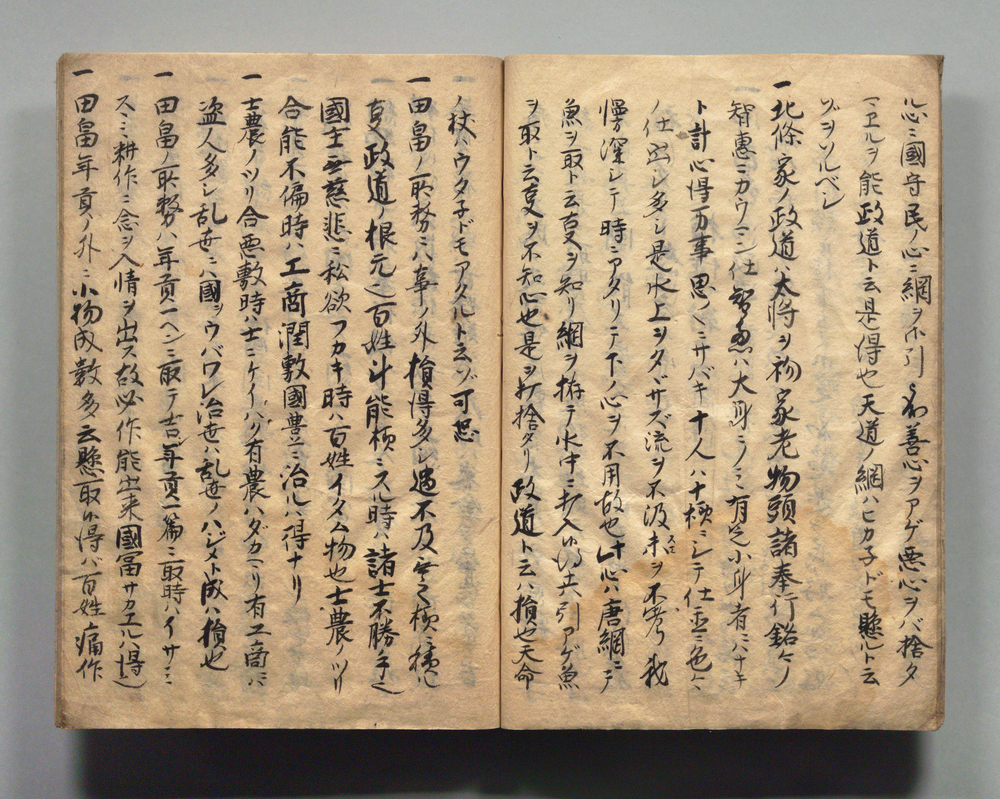 心ニ國守民ノ心ニ網ヲ不引シテ善心ヲアゲ悪心ヲバ捨タ
マエルヲ能政道ト云是得也天道ノ網ハヒカ子ドモ懸ルト云
ゾヲソルベシ
一北條家ノ政道ハ大将ヲ初家老物頭諸奉行銘々ノ
智惠ニカウマン仕智惠ハ大身ニノミ有定小身者ニハナキ
ト計心得万事思々ニサバキ十人ハ十様ニシテ仕置三色々
ノ仕出シ多シ是水上ヲタヾサズ流ヲ不汲末ヲ不考我
慢深シテ時ニアタリテ下ノ心ヲ不用故也此心ハ唐網ニテ
魚ヲ取ト云叓ヲ知リ網ヲ拵テ水中ニ打入候得共引アゲ魚
ヲ取ト云叓ヲ不知心也是ヲ打捨タリ政道ト云ハ損也天命
ノ杖ハウタ子ドモアタルト云ゾ可恐
一田畠ノ取務ニハ事ノ外損得多シ過不及無之様ニ積ル
叓政道ノ根元也百姓斗能様ニスル時ハ諸士不勝手也
國士無慈悲ニ私欲フカキ時ハ百姓イタム物也士農ノツリ
合能不偏時ハ工商潤敷國豊ニ治ルハ得ナリ
士農ノツリ合悪敷時ハ士ニケイハク有農ハダカマリ有工商ニハ
盗人多シ乱世ニハ國ヲウバワレ治世ハ乱世ノハジメト成ハ損也
一田畠ノ取務ハ年貢一ヘンニ取テ吉年貢一篇ニ取時ハイサミ
スヽミ耕作ニ念ヲ入情ヲ出ス故必作能出来國冨サカエルハ得也
一田畠年貢ノ外ニ小物成数多云懸取候得バ百姓痛作